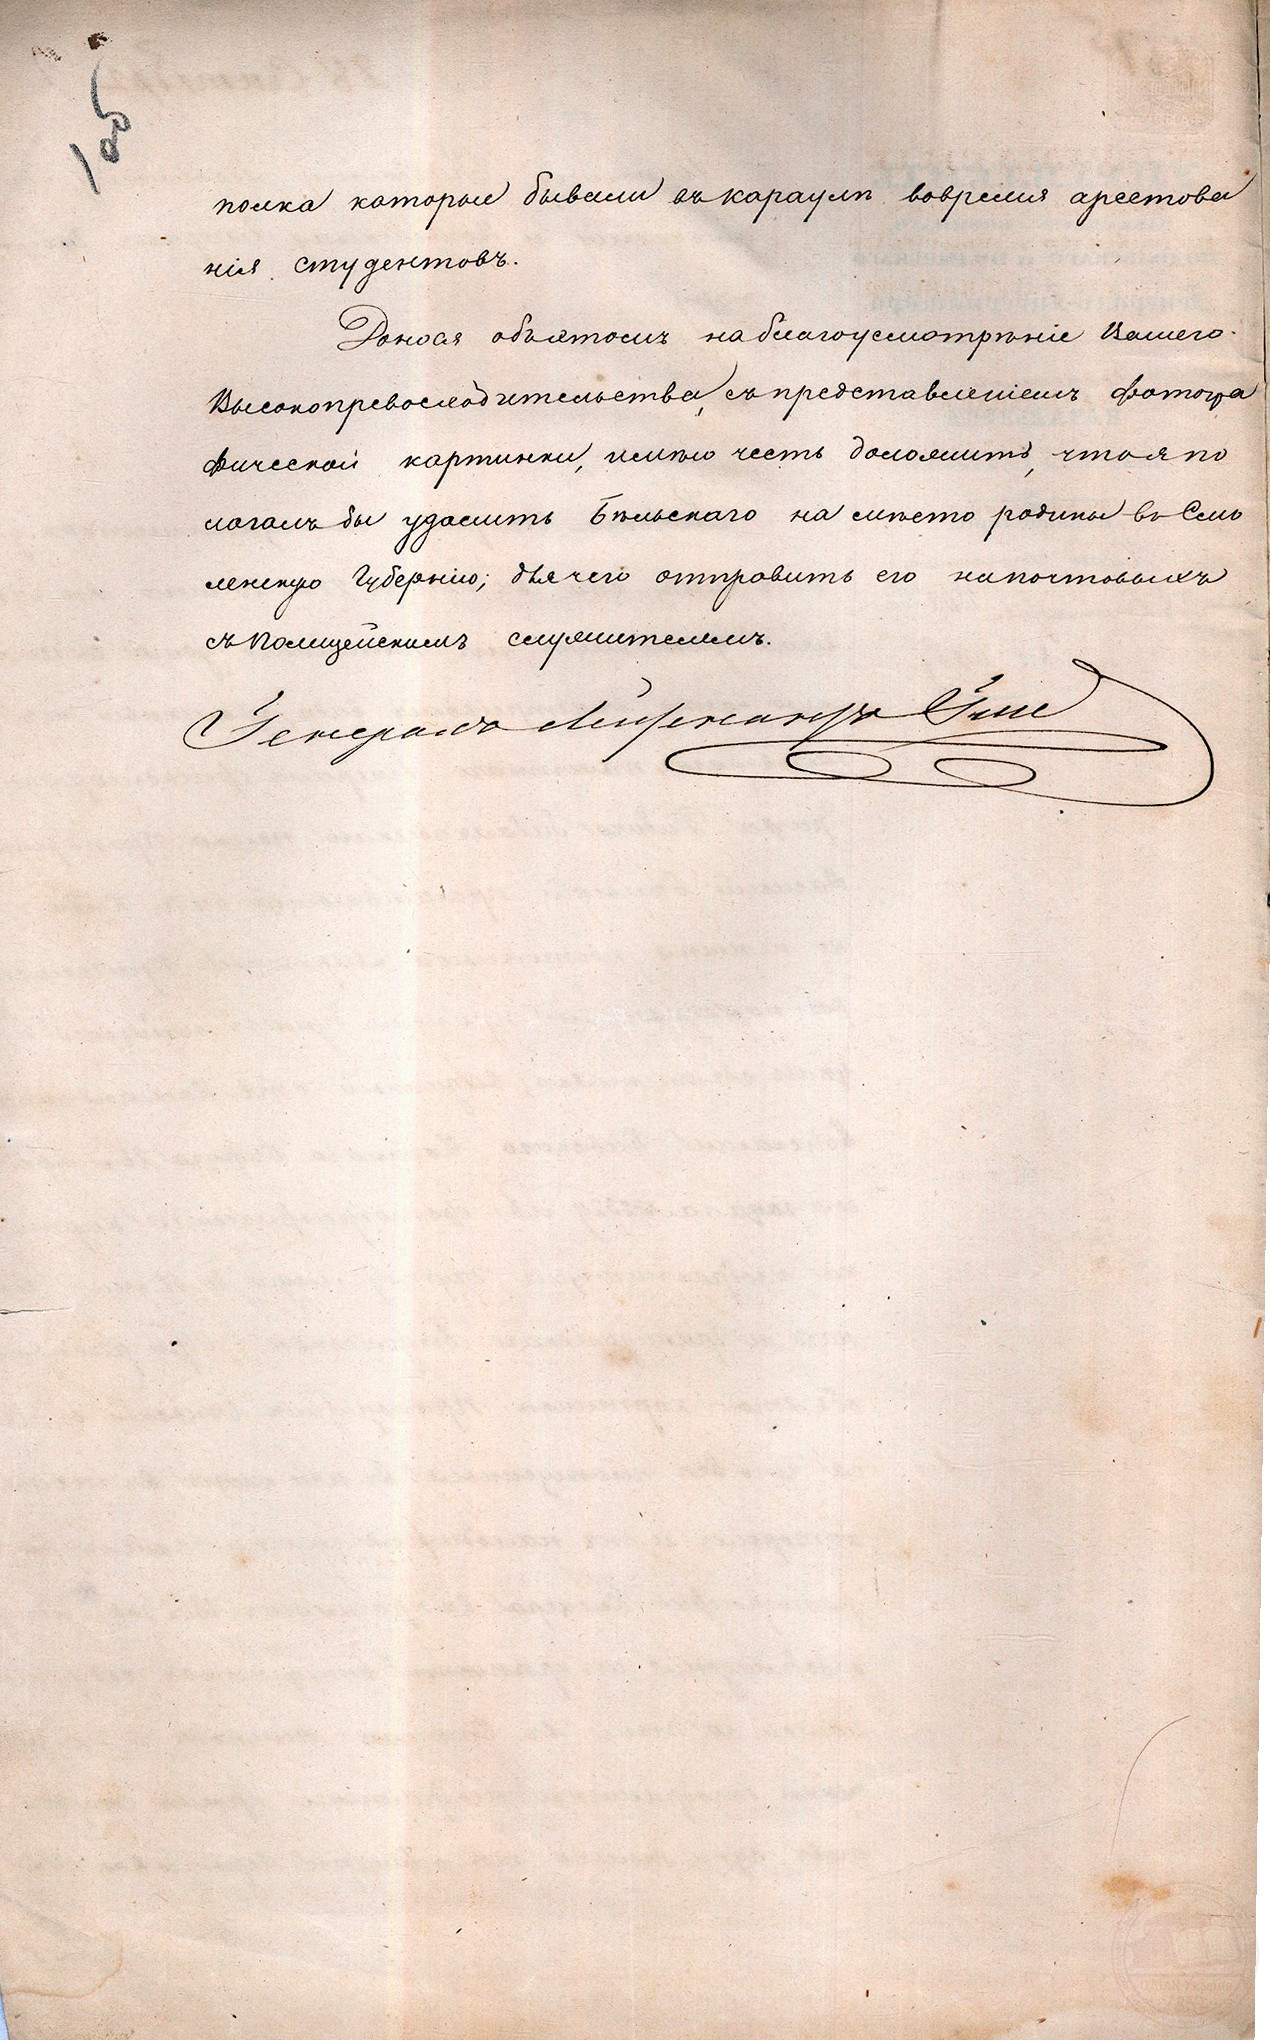 полка которые бывали въ караулѣ вовремя арестова
нія студентовъ.
Донося объэтомъ наблагоусмотрѣніе Вашего
Высокопревосходительства, съ представленіемъ фотогра
фической картинки, имѣю честь доложить, что я по
лагалъ бы удалить Бѣльскаго на мѣсто родины въ Смо
ленскую Губернію; для чего отправить его на почтовыхъ
съ Полицейскимъ служителемъ.
Генералъ Лейтенантъ